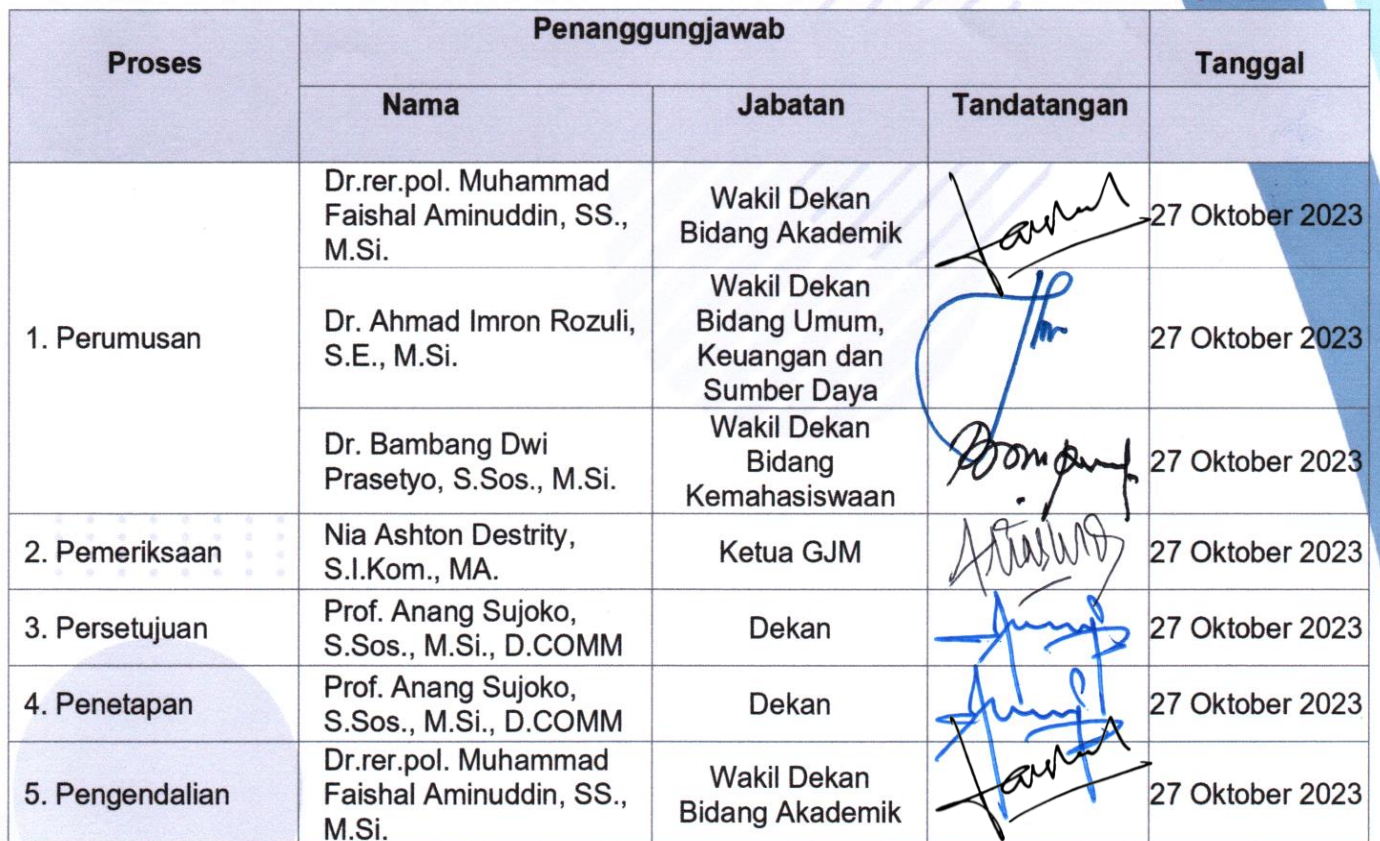 Proses
Penanggungjawab
Tanggal
Nama
Jabatan
Tandatangan
1. Perumusan
Dr.rer.pol. Muhammad
Faishal Aminuddin, SS.,
M.Si.
Wakil Dekan
Bidang Akademik
27 Oktober 2023
Dr. Ahmad Imron Rozuli,
S.E., M.Si.
Wakil Dekan
Bidang Umum,
Keuangan dan
Sumber Daya
27 Oktober 2023
Dr. Bambang Dwi
Prasetyo, S.Sos., M.Si.
Wakil Dekan
Bidang
Kemahasiswaan
27 Oktober 2023
2. Pemeriksaan
Nia Ashton Destrity,
S.I.Kom., MA.
Ketua GJM
27 Oktober 2023
3. Persetujuan
Prof. Anang Sujoko,
S.Sos., M.Si., D.COMM
Dekan
27 Oktober 2023
4. Penetapan
Prof. Anang Sujoko,
S.Sos., M.Si., D.COMM
Dekan
27 Oktober 2023
5. Pengendalian
Dr.rer.pol. Muhammad
Faishal Aminuddin, SS.,
M.Si.
Wakil Dekan
Bidang Akademik
27 Oktober 2023